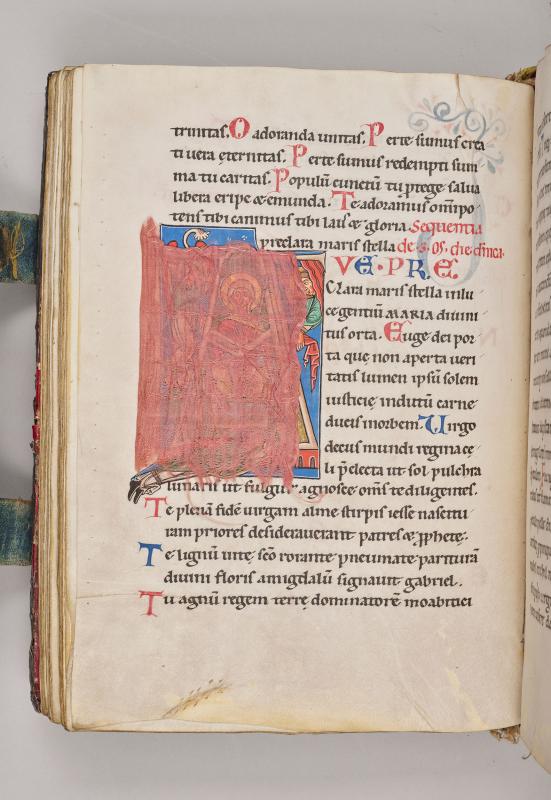 trinitas. O adoranda unitas. Perte sumus crea
ti uera ęternitas. Perte sumus redempti sum
ma tu caritas. Populū cunctū tu ꝓtege salua
libera eripe & emunda. Te adoramus om̄ipo
tens tibi canimus tibi laus & gloria. Sequentia
preclara maris stella de s.
VE·PRE
Clara maris stella inlu
ce gentiū MARIA diuini
tus orta. Euge dei por
ta que non aperta ueri
tatis lumen ipsū solem
iusticię indutū carne
ducis in orbem. Uirgo
decus mundi regina cę
li p̄electa ut sol pulchra
lunaris ut fulgur agnosce om̄s te diligentes.
Te plenā fidē uirgam alme stirpis iesse nascitu
ram priores desiderauerant patres & ꝓphetę.
Te lignū uitę sc̄o rorante pneumate parituram
diuini floris amigdalū signauit gabriel.
Tu agnū regem terrę dominatorē moabitici